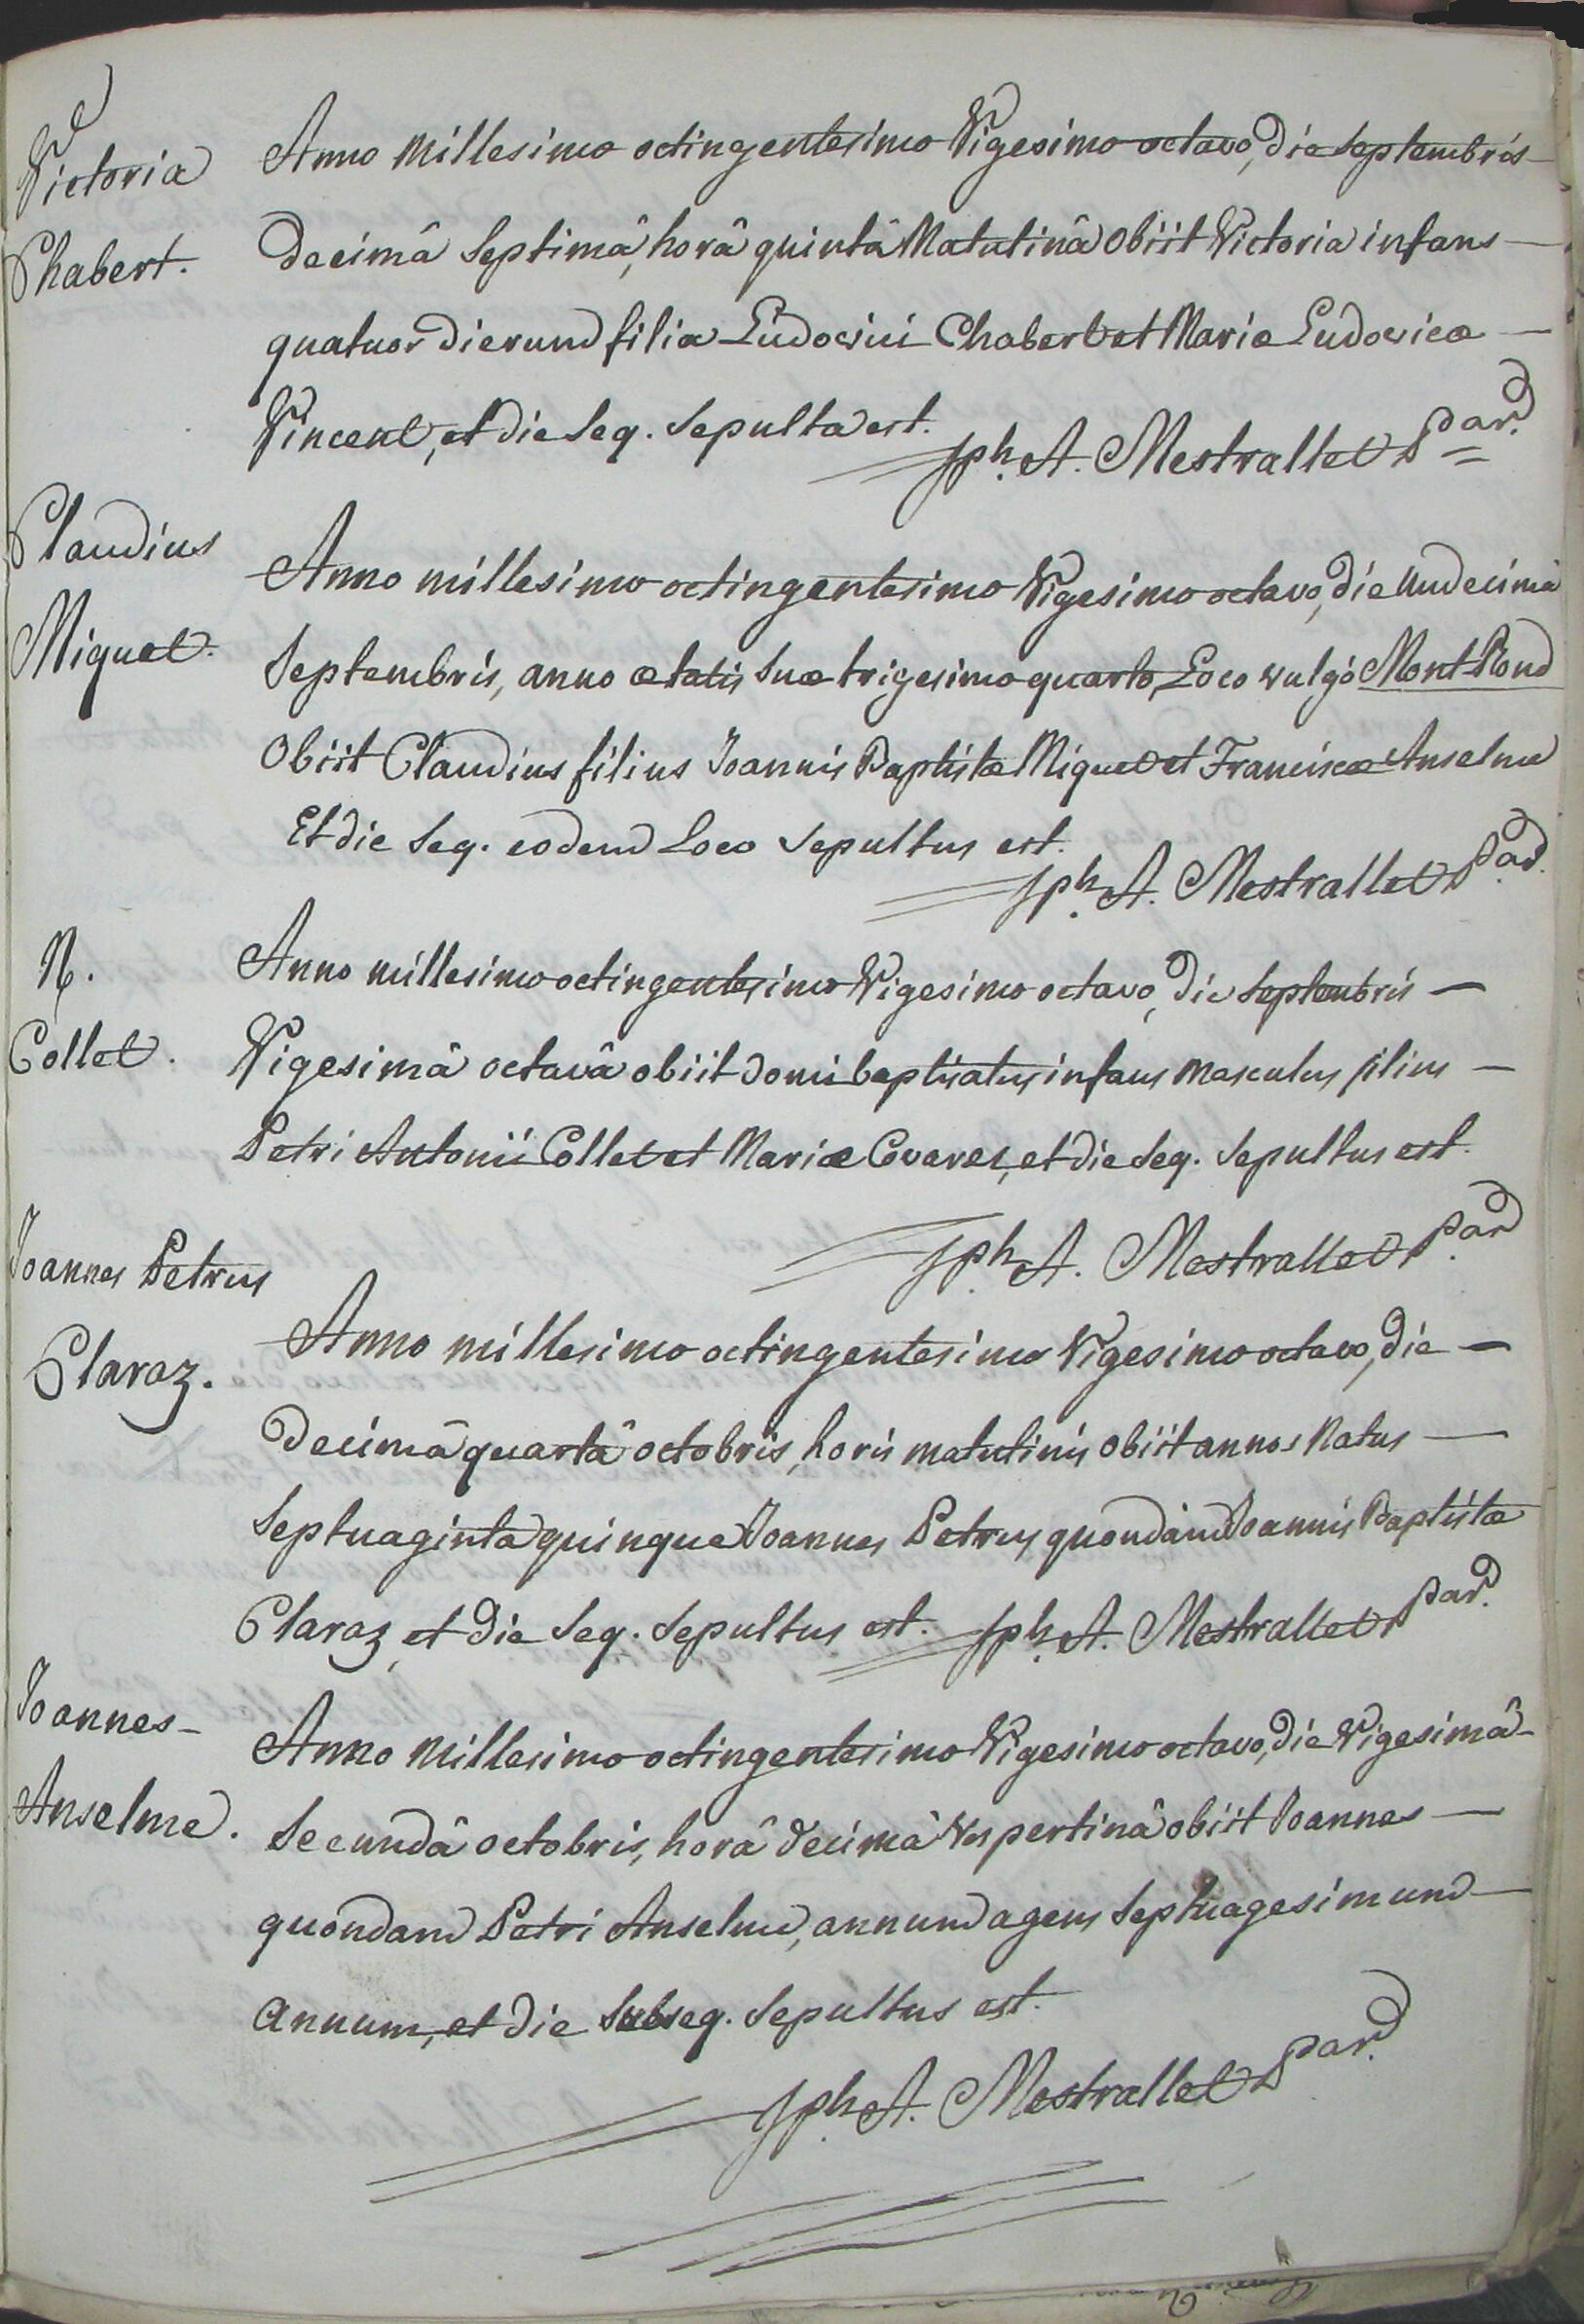 Victoria
Chabert.
Anno Millesimo octingentesimo Vigesimo octavo, die septembris
Decimâ Septimâ, horâ quintâ Matutinâ Obiit Victoria infans
quatuor dierum filia Ludovici Chabert et Mariæ Ludovicæ
Vincent, et die Seq. Sepulta est.
Jph. A. Mestrallet Par.
Claudius
Miquet.
Anno millesimo octingentesimo Vigesimo octavo, die undecimâ
Septembris, anno ætatis suæ trigesimo quarto, Loco vulgò Mont-Rond
Obiit Claudius filius Joannis Baptistæ Miquet et Franciscæ Anselme
Et die Seq. eodem Loco Sepultus est.
Jph. A. Mestrallet Par.
N.
Collet.
Anno millesimo octingentesimo Vigesimo octavo, die Septembris
Vigesimâ octavâ obiit domi baptisatus infans masculus filius
Petri Antonii Collet et Mariæ Covarel, et die Seq. Sepultus est.
Jph. A. Mestrallet Par
Joannes Petrus
Claraz.
Anno millesimo octingentesimo Vigesimo octavo, die
Decimâ quartâ octobris, horis matutinis obiit annos Natus
Septuaginta quinque Joannes Petrus quondàm Joannis Baptistæ
Claraz, et die Seq. Sepultus est.
Jph. A. Mestrallet Par.
Joannes-
Anselme.
Anno Millesimo octingentesimo Vigesimo octavo, die Vigesimâ-
Secundâ octobris, horâ decimâ Vespertinâ obiit Joannes
quondam Petri Anselme, annum agens Septuagesimum
annum, et die Subseq. Sepultus est.
Jph. A. Mestrallet Par.